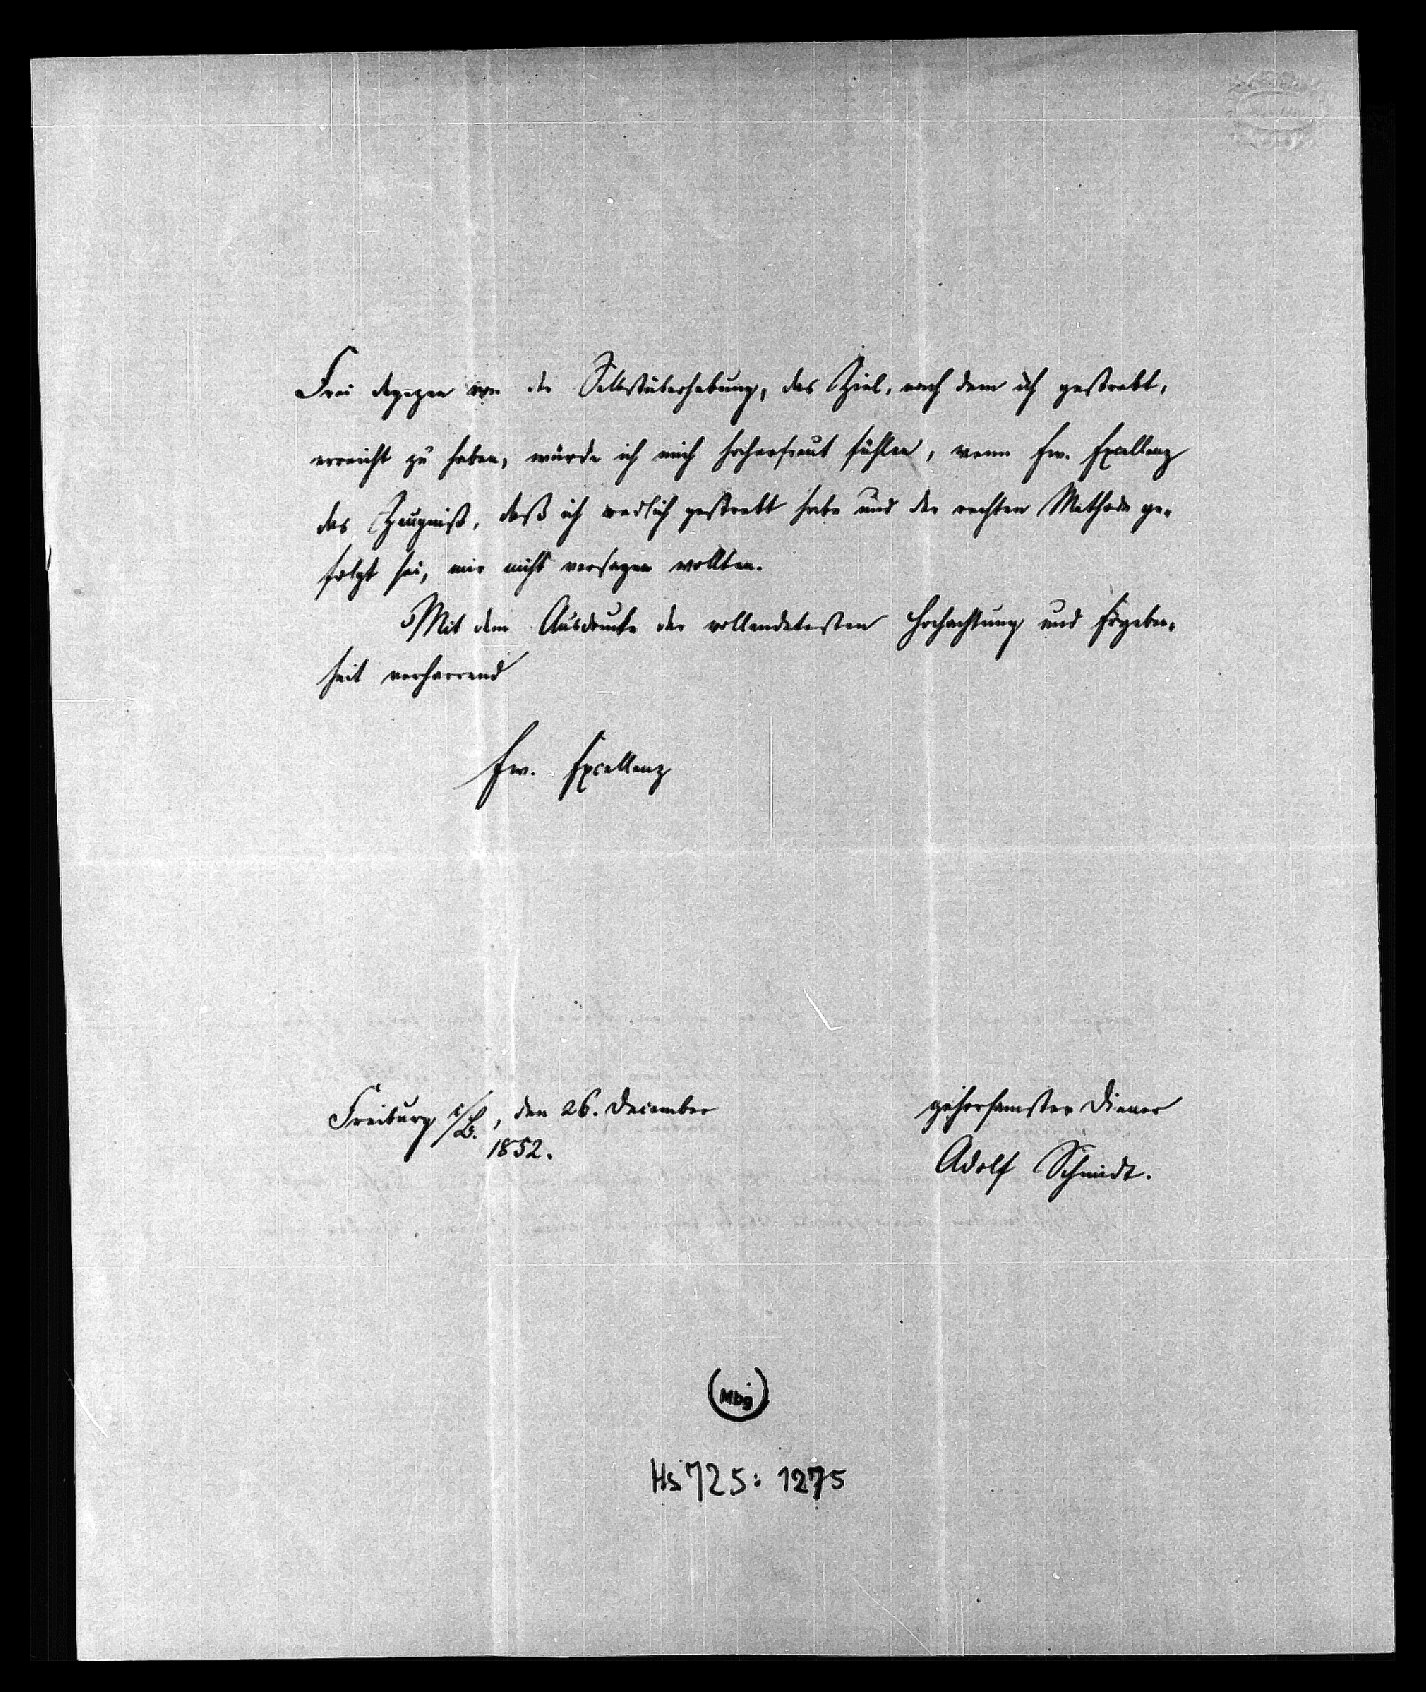 Frei dagegen von der Selbstüberhebung, das Ziel, nach dem ich gestrebt,
erreicht zu haben, würde ich mich hocherfreut fühlen, wenn Ew. Excellenz
das Zeugniß, daß ich redlich gestrebt habe und der rechten Methode ge-
folgt sei, mir nicht versagen wollten.
Mit dem Ausdrucke der vollendetesten Hochachtung und Ergeben-
heit verharrend
Ew. Excellenz
gehorsamster Diener
Adolf Schmidt.
Freiburg i/B., den 26. December
1852.
Mbg
Hs 725: 1275